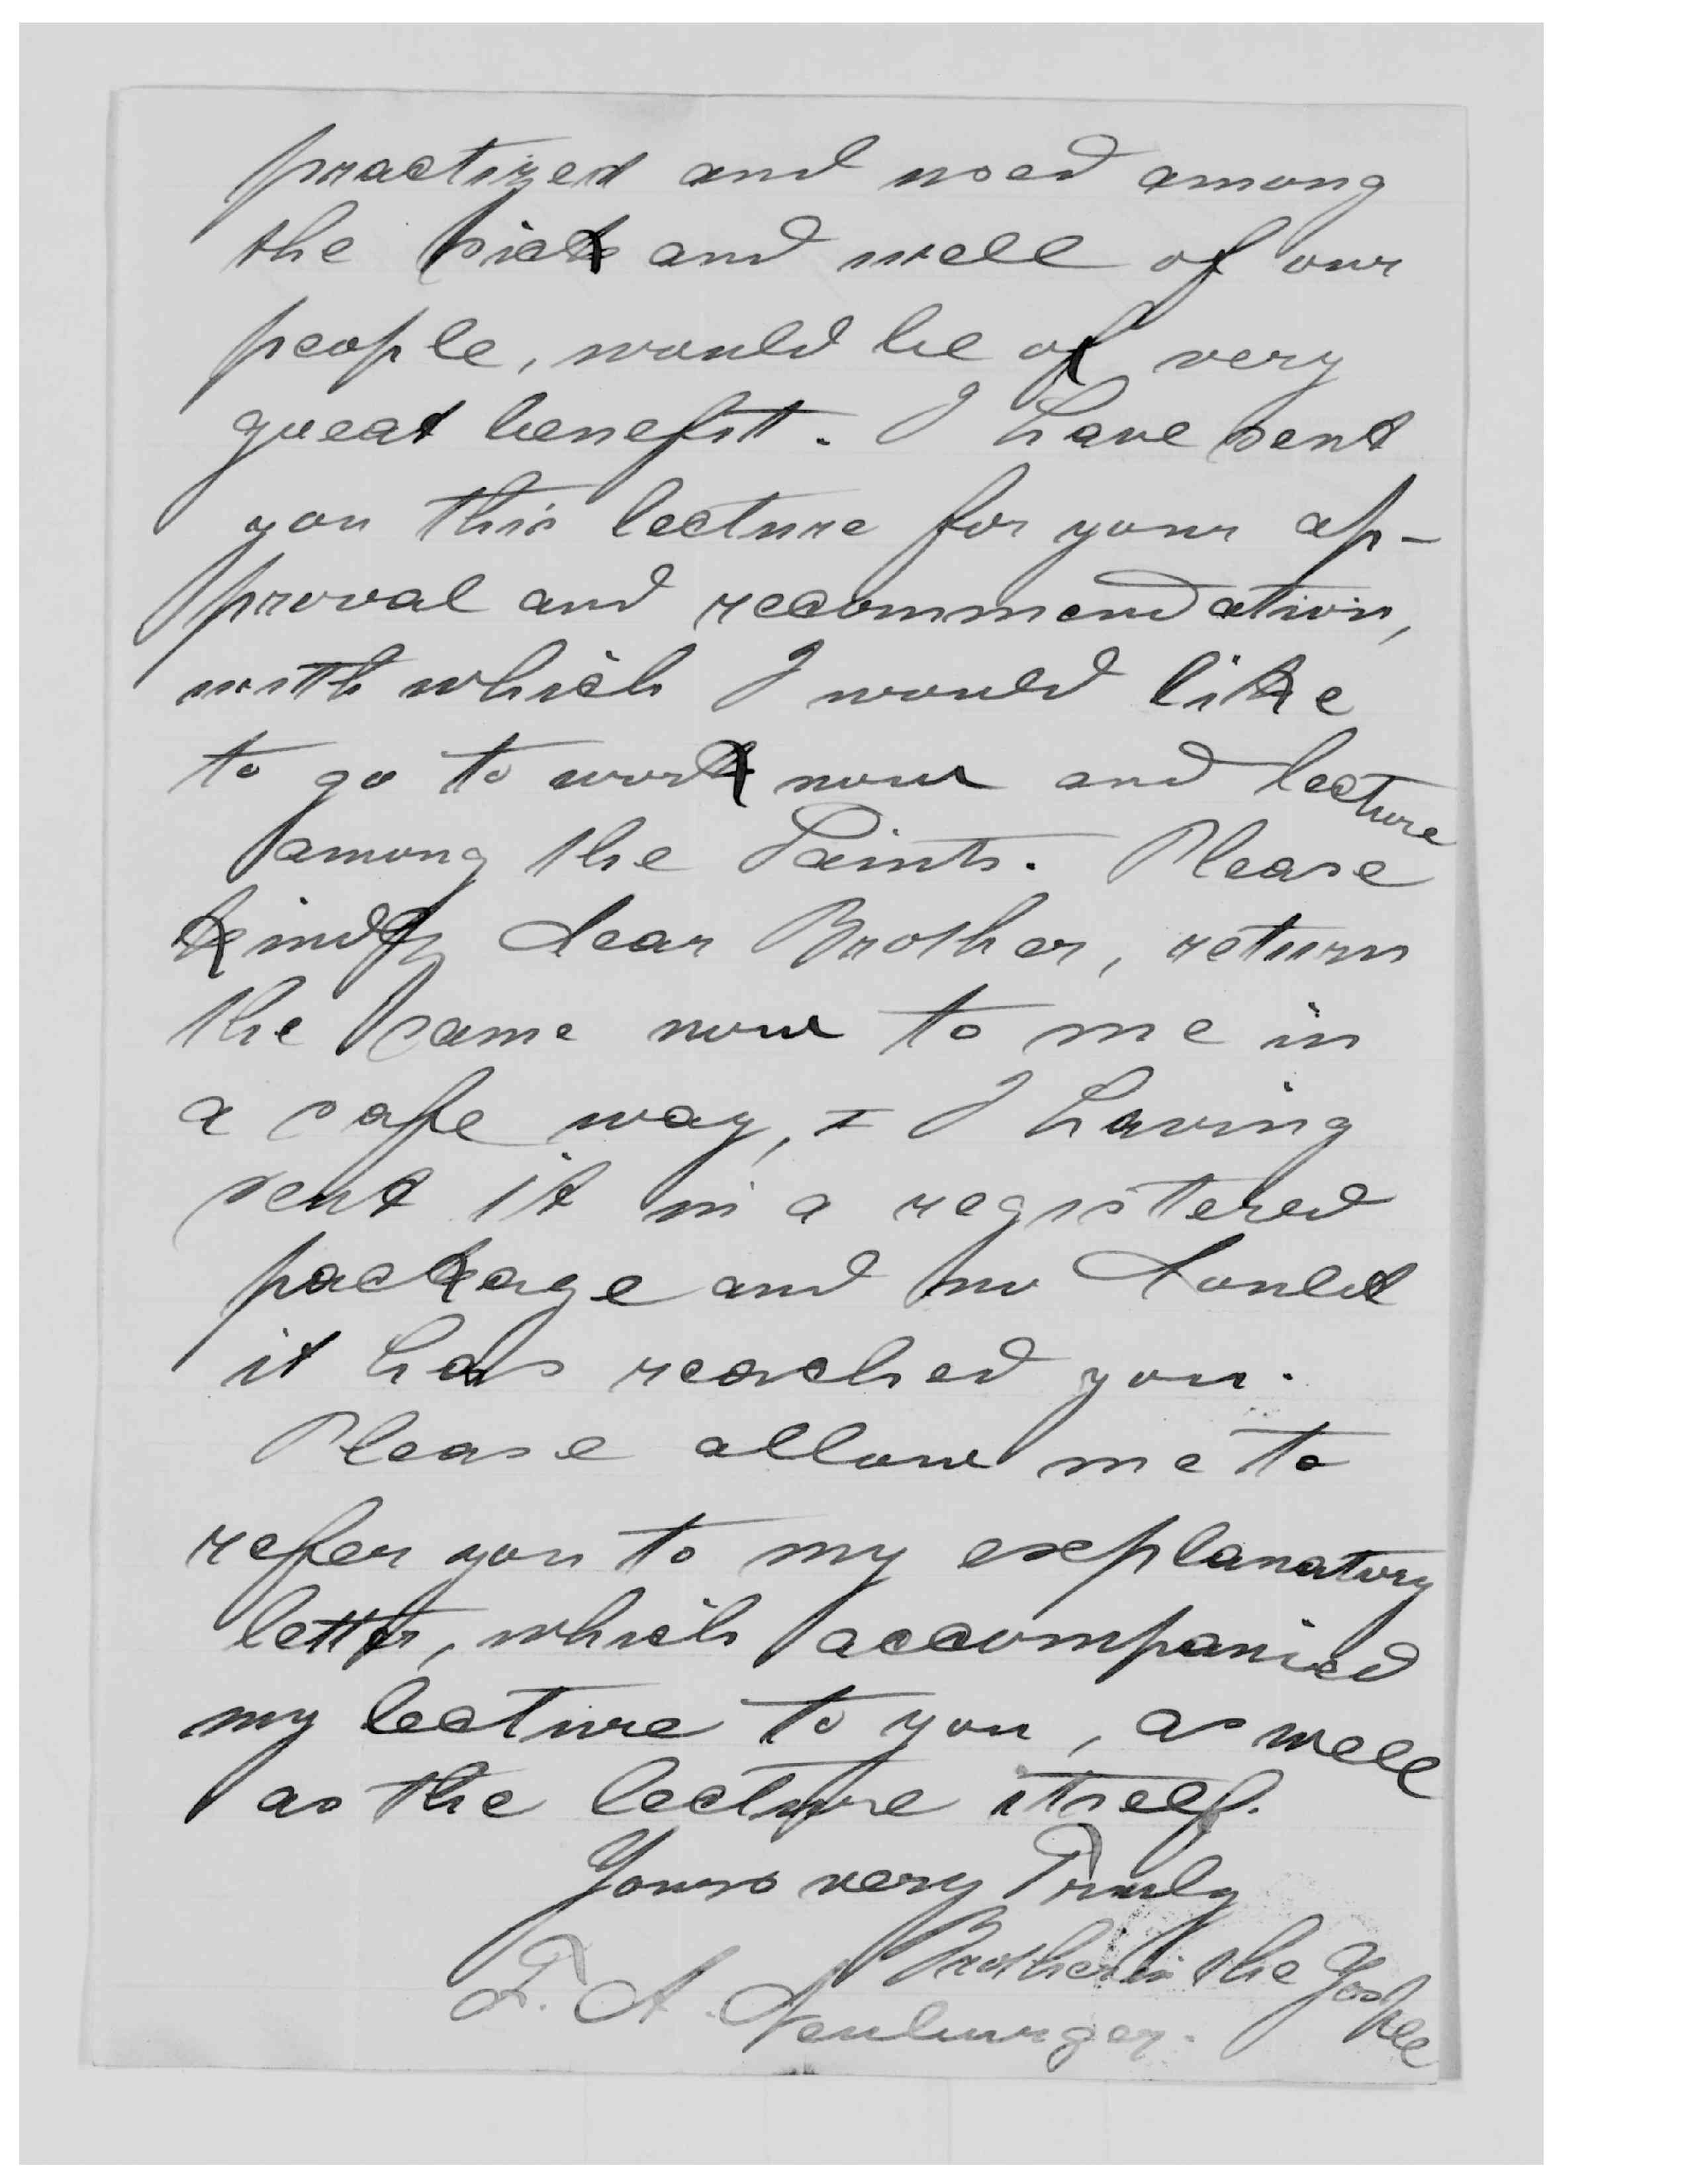 practized and used among
the sick and well of our
people, would be of very
great benefit. I have sent
you this lecture for your ap-
proval and recommendation,
with which I would like
to go to work now and lecture
among the Saints. Please
kindly dear Brother, return
the same now to me in
a safe way, I I having
sent it in a registered
package and no doubt
it has reached you.
Please allow me to
refer you to my explanatory
letter, which accompanied
my lecture to you, as well
as the lecture itself.
Yours very Truly
Brother in the Gospel
F. A. Neuburger.